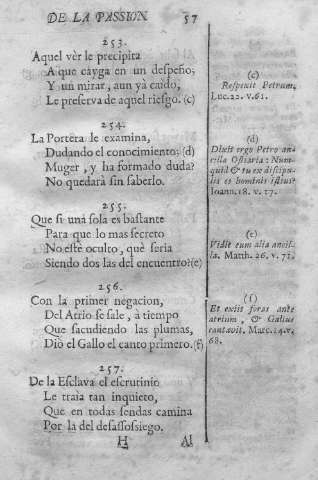 DE LA PASSION 57
253.
Aquel vèr le precipita
A que cayga en un despeño;
Y un mirar, aun yà caìdo,
Le preserva de aquel riesgo. (c)
254.
La Portera le examina,
Dudando el conocimiento; (d)
Muger, y ha formado duda?
No quedarà sin saberlo.
255.
Que si una sola es bastante
Para que lo mas secreto
No estè oculto, què seria
Siendo dos las del encuentro? (e)
256.
Con la primer negacion,
Del Atrio se sale, à tiempo
Que sacudiendo las plumas,
Diò el Gallo el canto primero. (f)
257.
De la Esclava el escrutinio
Le traìa tan inquieto,
Que en todas sendas camina
Por la del desassossiego.
H Al
(c)
Respexit Petrum.
Luc. 22. v. 61.
(d)
Dixit ergo Petro an-
cilla Ostiaria: Num-
quid & tu ex discipu-
lis es hominis istius?
Ioann. 18. v. 17.
(e)
Vidit eum alia ancil-
la. Matth. 26. v. 71.
(f)
Et exiit foras ante
atrium, & Gallus
cantavit. Marc. 14. v.
68.